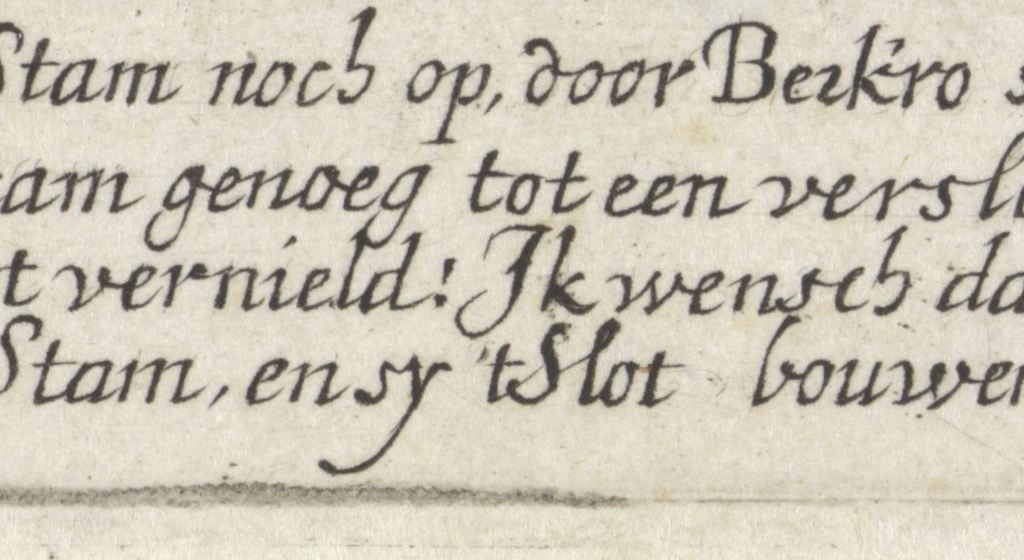 Stam noch op, door Berk'ro s
am genoeg tot een versl
t vernield! Ik wensch da
Stam, en sy 't Slot bouwen